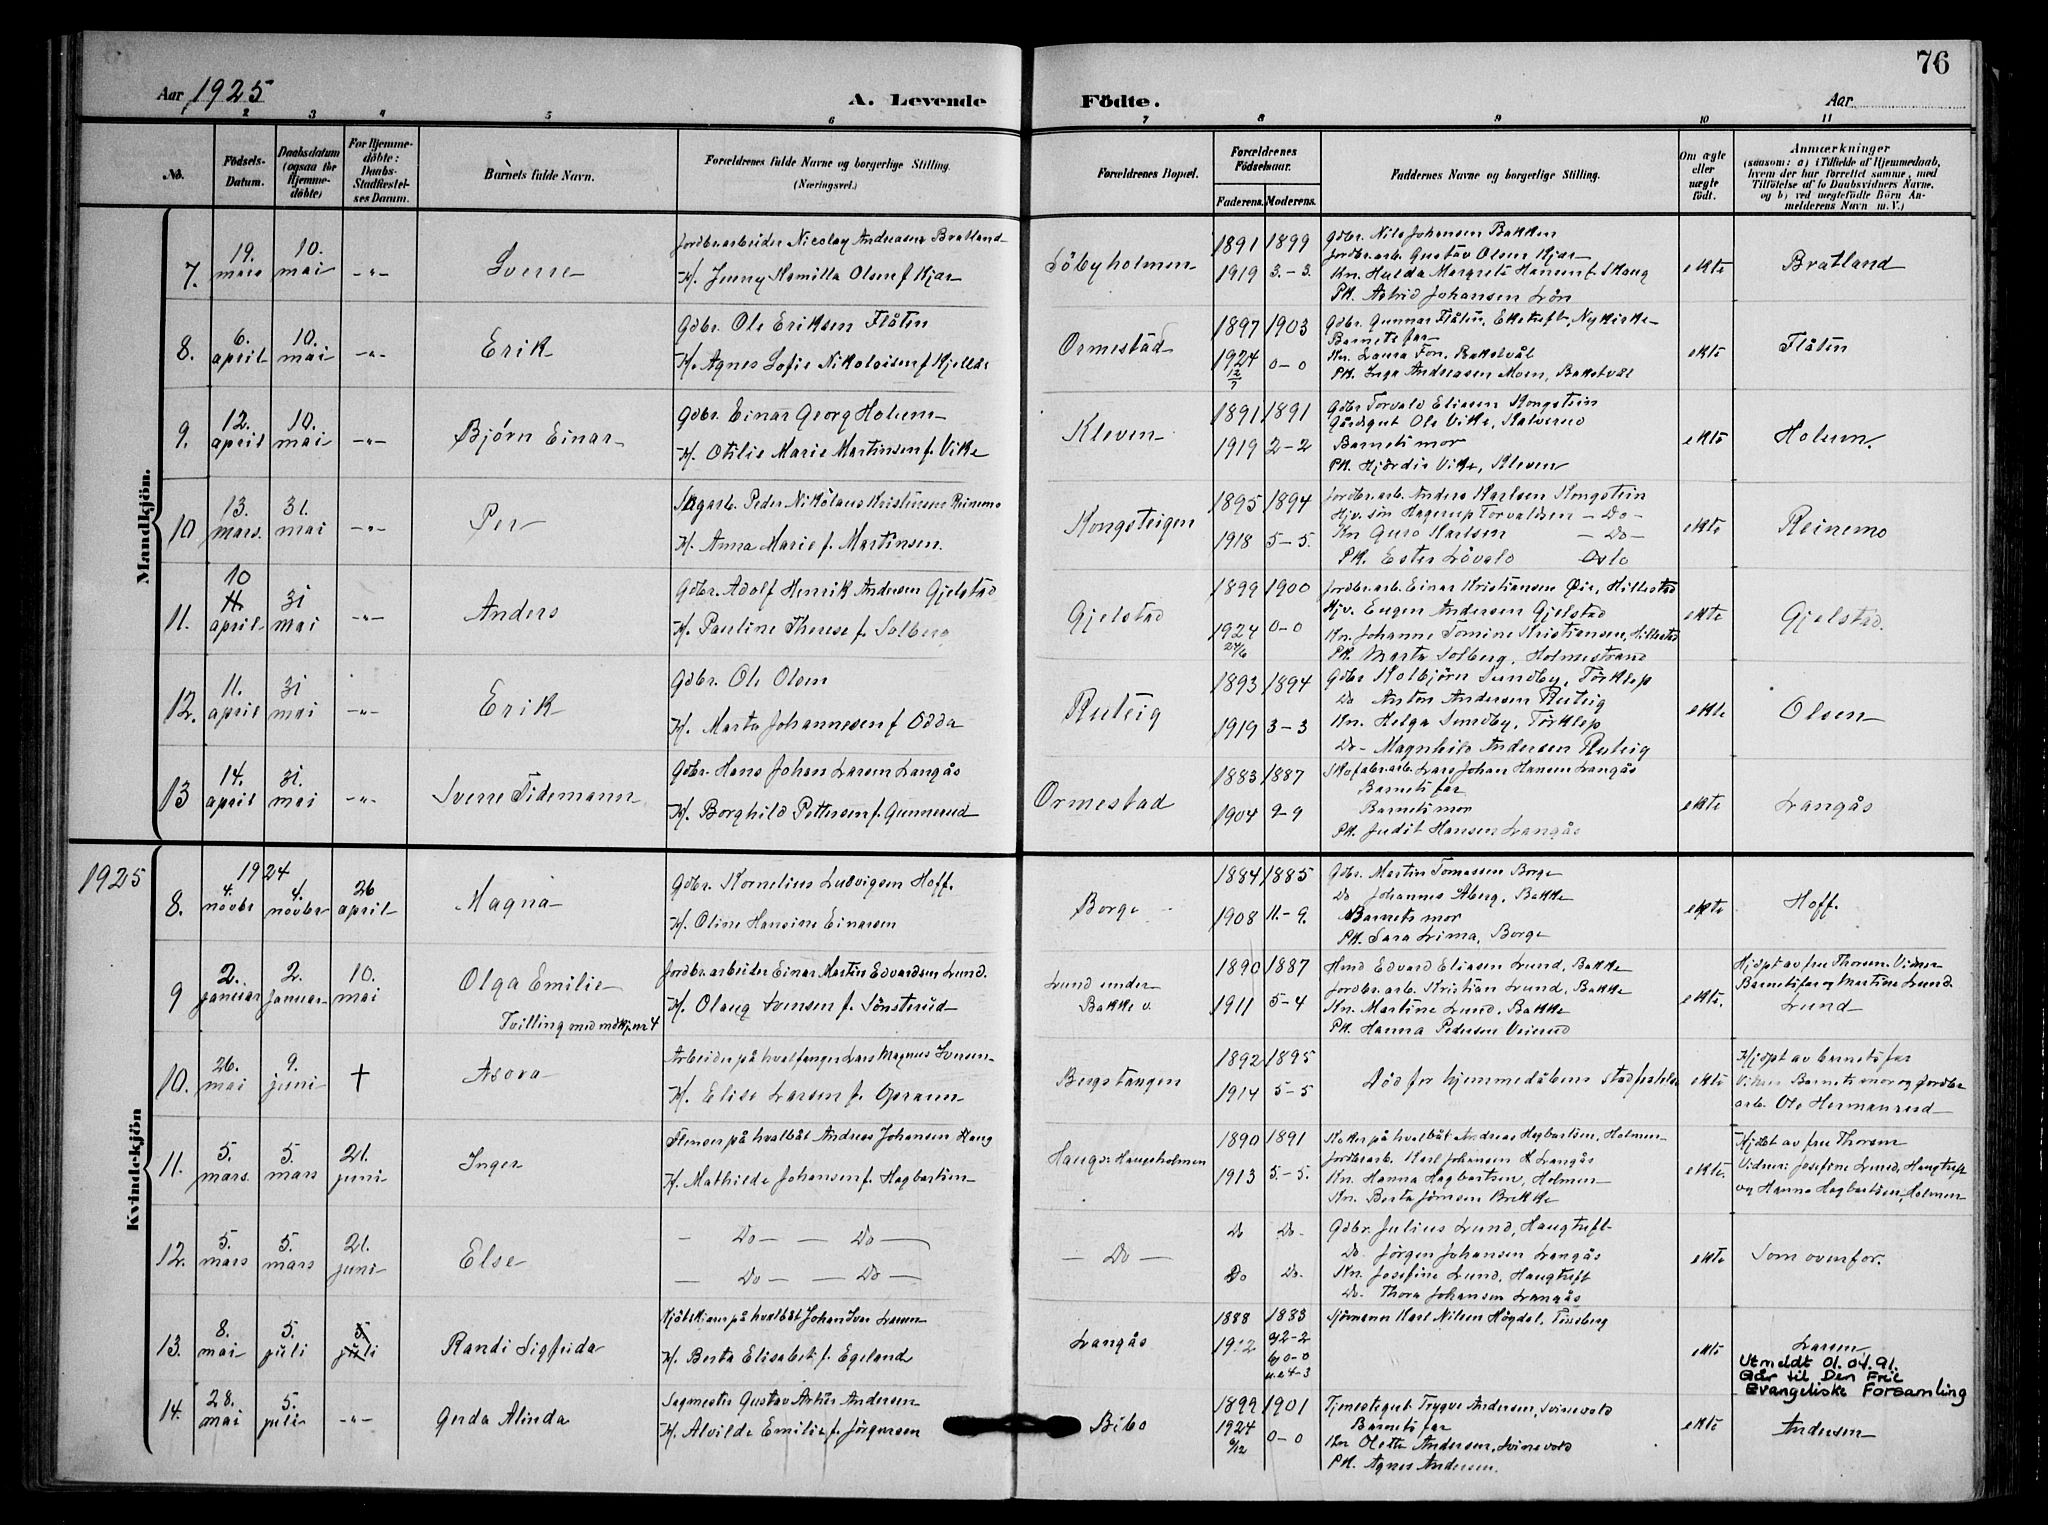 76
Aar 1925
A. Levende
Födte.
Aar
2 3 4 5 6 7 8 9 10 11
No.
Födsels-
Datum.
Daabsdatum
(ogsaa for
Hjemme-
döbte)
For Hjemme-
döbte:
Daabs-
Stadfæstel-
ses Datum.
Barnets fulde Navn.
Forældrenes fulde Navne og borgerlige Stilling.
(Næringsvei.)
Forældrenes Bopæl.
Forældrenes
Födselsaar.
Faderens. Moderens.
Faddernes Navne og borgerlige Stilling.
Om ægte
eller
uægte
födt.
Anmærkninger
(saasom: a) i Tilfælde af Hjemmedaab,
hvem der har forrettet samme, med
Tilföielse af to Daabsvidners Navne,
og b) ved uægteföдte Börn An-
melderens Navn m. V.)
Mandkjön.
7. 19. mars 10. mai -"- Sverre
Jordbr.arbeider Nicolay Andreasen Bratland
H. Jenny Kamilla Olsen f. Kjær
Söbyholmen 1891 1899
1919 3.-3.
Gdbr. Nils Johansen Bakken
Jordbr.arb. Gustav Olsen Kjær
Kn. Hulda Margrete Hansen f. Skaug
Pk. Astrid Johansen Lön
ekte Bratland
8. 6. april 10. mai -"- Erik
Gdbr. Ole Eriksen Flåten
H. Agnes Sofie Nikolaisen f. Kjelldø
Ormestad 1897 1903
1924 0-0
12/7
Gdbr. Gunnar Flåten, Eketuft, Nykirke
Barnets far
Kn. Laura Fon, Bakstvål
Pk. Inga Andreasen Moen, Bakstvål
ekte Flåten
9. 12. april 10. mai -"- Bjørn Einar
Gdbr. Einar Georg Holum
H. Otilie Marie Martinsen f. Vike
Kleven 1891 1891
1919 2-2
Gdbr. Torvald Eliasen Kongstein
Gårdsgut Ole Vike, Kalverud
Barnets mor
Pk. Hjørdis Vike, Kleven
ekte Holum.
10. 13. mars. 31. mai -"- Per
Sagarb. Peder Nikolaus Kristensen Reinemo
H. Anna Marie f. Martinsen.
Kongsteigen 1895 1894
1918 5-5.
Jordbr.arb. Anders Karlsen Kongstein
Hjv. sön Hagerup Torvaldsen - Do -
Kn Guro Karlsen - Do -
Pk. Ester Lövald Oslo
ekte Reinemo
11. 10 april 31 mai -"- Anders
Gdbr. Adolf Henrik Andersen Gjelstad
H. Pauline Therese f. Solberg
Gjelstad 1899 1900
1924 0-0
24/6
Jordbr.arb. Einar Kristiansen Öir, Hillestad
Hjv. Eugen Andersen Gjelstad
Kn. Johanne Tomine Kristiansen, Hillestad
Pk. Marta Solberg, Holmestrand
ekte Gjelstad.
12. 11. april 31 mai -"- Erik
Gdbr. Ole Olsen
H. Marta Johannesen f. Odda
Ruteig 1893 1894
1919 3-3
Gdbr Kolbjörn Sundby, Törklep
Do Anton Andersen Ruteig
Kn. Helga Sundby, Törklep
Do- Magnhild Andersen Ruteig
ekte Olsen
13 14. april 31. mai -"- Sverre Tidemann
Gdbr. Hans Johan Larsen Langås
H. Borghild Pettersen f. Gunnerud
Ormestad 1883 1887
1904 9-9
Skofabr.arb. Lars Johan Hansen Langås
Barnets far
Barnets mor
Pk. Judit Hansen Langås
ekte Langås
1925
Kvindekjön
1924
8. 4. novbr 4. novbr 26 april Magna
Gdbr. Kornelius Ludvigsen Hoff.
H. Oline Hansine Einarsen
Borge 1884 1885
1908 11.-9.
Gdbr. Martin Tomassen Borge
Do Johannes Åberg, Bakke
Barnets mor
Pk. Sara Lima, Borge
ekte Hoff.
9 2. januar 2. januar 10. mai Olga Emilie
Tvilling med mdkj. nr 4
Jordbr.arbeider Einar Martin Edvardsen Lund.
H. Olaug Svensen f. Sönsterud
Lund under
Bakke v. 1890 1887
1911 5-4
Hmd Edvard Eliasen Lund, Bakke
Jordbr. arb. Kristian Lund, Bakke
Kn. Martine Lund, Bakke
Pk. Hanna Pedersen Veierud
ekte.
Hjdpt av fru Thorsen. Vidner
Barnets far og Martine Lund.
Lund
10. 26. mai 9. juni † Asora
Arbeider på hvalfanger Lars Magnus Iversen
H. Elise Larsen f. Opraun
Bergstangen 1892 1895
1914 5-5
Död för hjemmedåbens stadfestelse
ekte
Hjdpt av barnets far
Vidner Barnets mor og jordbr
arb. Ole Hermansrud
11. 5. mars. 5. mars 21. juni Inger
Flenser på hvalbåt Andreas Johansen Haug
H. Mathilde Johansen f. Hagbartsen
Haug v. Haugsholmen 1890 1891
1913 5-5.
Kokk på hvalbåt Andreas Hagbartsen, Holmen
Jordbr.arb. Karl Johansen Langås
Kn. Hanna Hagbartsen, Holmen
Kn. Berta Jonsen Bakke
ekte.
Hjdöbt av fru Thorsen
Vidner: Josefine Lund, Haugtuft
og Hanna Hagbartsen, Holmen
12. 5. mars 5. mars 21. juni Else
- Do - - Do -
- Do - - Do -
- Do -
Do Do.
Do Do.
Gdbr. Julius Lund, Haugtuft
Do. Jörgen Johansen Langås
Kn. Josefine Lund, Haugtuft
Do. Thora Johansen Langås
ekte Som ovenfor.
13. 8. mai 5. juli 5 juli Randi Sigfrida
Kjötskjærer på hvalbåt Johan Iver Larsen
H. Berta Elisabet f. Egeland
Langås 1888 1883
1912 a) 2-2
b) 0-0
u.e 4-3
Sjömann Karl Nilsen Högdal, Tönsberg
ekte Larsen
Utmeldt 01.04.91.
Går til Den Frie
Evangeliske Forsamling
14. 28. mai 5. juli -"- Gerda Alinda
Sagmester Gustav Artur Andersen
H. Alvilde Emilie f. Jörgensen
Bibo 1899 1901
1924 0-0
6/12
Tjenestegut Trygve Andersen, Svinevold
Barnets far
Kn Olette Andersen, Svinevold
Pk. Agnes Andersen.
ekte Andersen